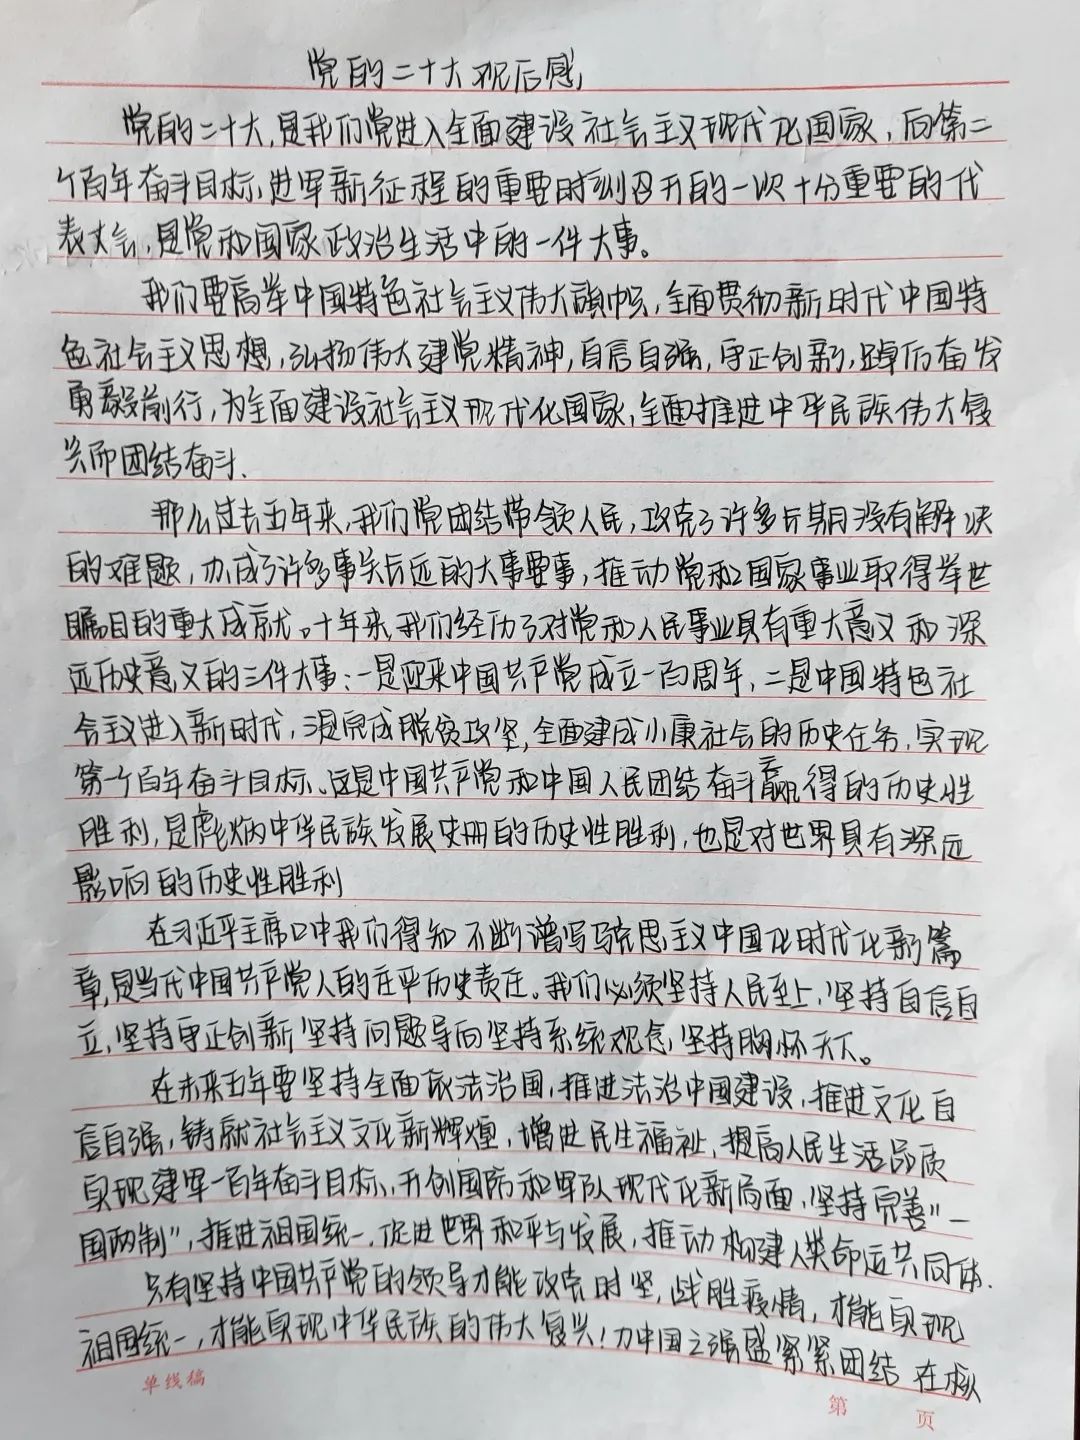 党的二十大观后感
党的二十大，是我们党进入全面建设社会主义现代化国家，向第二
个百年奋斗目标，进军新征程的重要时刻召开的一次十分重要的代
表大会，是党和国家政治生活中的一件大事。
我们要高举中国特色社会主义伟大旗帜，全面贯彻新时代中国特
色社会主义思想，弘扬伟大建党精神，自信自强，守正创新，踔厉奋发
勇毅前行，为全面建设社会主义现代化国家，全面推进中华民族伟大复
兴而团结奋斗.
那么过去五年来，我们党团结带领人民，攻克了许多长期没有解决
的难题，办成了许多事关长远的大事要事，推动党和国家事业取得举世
瞩目的重大成就。十年来，我们经历了对党和人民事业具有重大意义和深
远历史意义的三件大事：一是迎来中国共产党成立一百周年，二是中国特色社
会主义进入新时代，三是完成脱贫攻坚，全面建成小康社会的历史任务，实现
第一个百年奋斗目标、这是中国共产党和中国人民团结奋斗赢得的历史性
胜利，是彪炳中华民族发展史册的历史性胜利，也是对世界具有深远
影响的历史性胜利
在习近平主席口中我们得知 不断谱写马克思主义中国化时代化新篇
章，是当代中国共产党人的庄严历史责任。我们必须坚持人民至上，坚持自信自
立，坚持守正创新 坚持问题导向坚持系统观念，坚持胸怀天下。
在未来五年要坚持全面依法治国，推进法治中国建设，推进文化自
信自强，铸就社会主义文化新辉煌，增进民生福祉，提高人民生活品质
实现建军一百年奋斗目标，开创国防和军队现代化新局面，坚持完善"一
国两制"，推进祖国统一，促进世界和平与发展，推动构建人类命运共同体.
只有坚持中国共产党的领导才能攻克时坚，战胜疫情，才能实现
祖国统一，才能实现中华民族的伟大复兴！为中国之强盛紧紧团结 在
单线稿
第 页